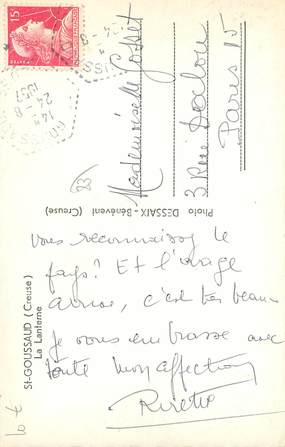 St-GOUSSAUD (Creuse)
La Lanterne
Photo DESSAIX - Bénévent (Creuse)
vous reconnaissez le
pays? Et l'orage
arrive, c'est très beau
je vous embrasse avec
toute mon affection
Mademoiselle Gosset
3 Rue Dalou
Paris 15
15
24-8
1957
23
10 €